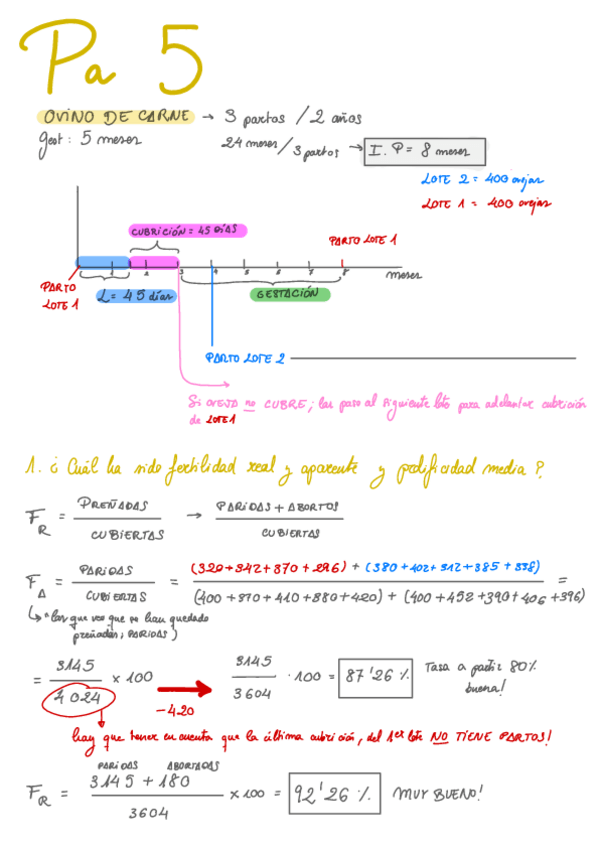 Pa 5
OVINO DE CARNE → 3 partos / 2 años
gest: 5 meses
24 meses / 3 partos → I.P = 8 meses
LOTE 2 = 400 ovejas
LOTE 1 = 400 ovejas
CUBRICIÓN = 45 DÍAS
PARTO LOTE 1
1 2 3 4 5 6 7 8 meses
PARTO LOTE 1
L = 45 días
GESTACIÓN
PARTO LOTE 2
Si OVEJA no CUBRE; las paso al siguiente lote para adelantar cubrición
de LOTE 1
1. ¿Cuál ha sido fertilidad real y aparente y prolificidad media?
F_R = PREÑADAS / CUBIERTAS → PARIDAS + ABORTOS / CUBIERTAS
F_A = PARIDAS / CUBIERTAS = (320+342+370+296) + (380+402+312+385+338) / (400+370+410+380+420) + (400+452+390+406+396) =
↳ "las que veo que se han quedado
preñadas; PARIDAS)
= 3145 / 4024 × 100 → -420 3145 / 3604 · 100 = 87'26 % Tasa a partir 80%
buena!
hay que tener en cuenta que la última cubrición, del 1er lote NO TIENE PARTOS!
PARIDAS ABORTADAS
F_R = 3145 + 180 / 3604 × 100 = 92'26 % MUY BUENO!